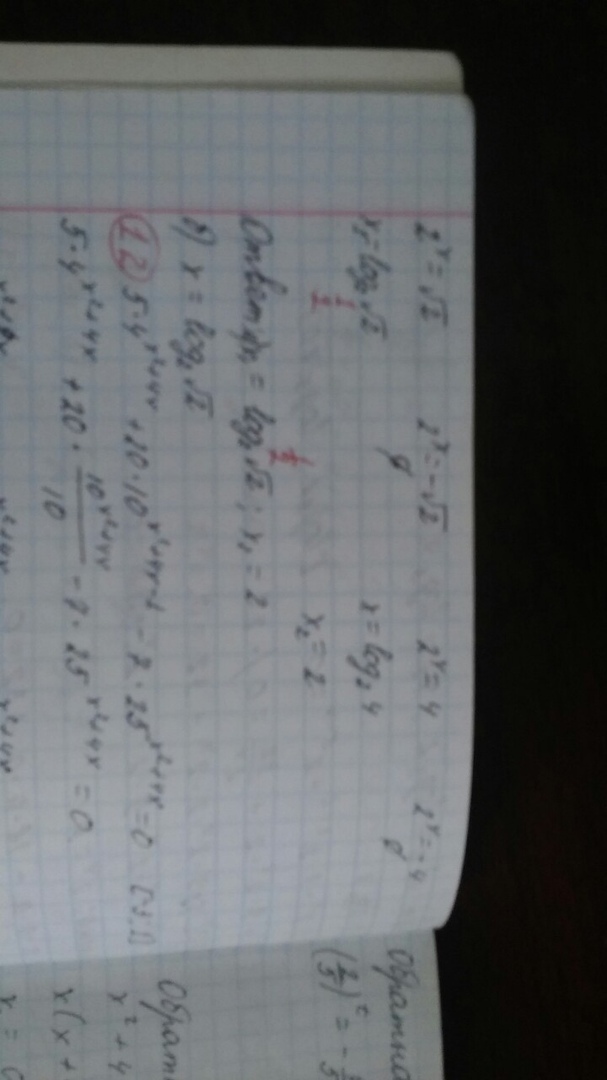 2ˣ = √2    2ˣ = -√2    2ˣ = 4    2ˣ = -4
∅    ∅
x₁ = log₂√2    x = log₂4
1/2
x₂ = 2
1/2
Ответ: x₁ = log₂√2; x₂ = 2
б) x = log₂√2
12) 5·4^(x²+4x) + 20·10^(x²+4x-1) - 7·25^(x²+4x) = 0
5·4^(x²+4x) + 20 · 10^(x²+4x)/10 - 7·25^(x²+4x) = 0
x²+4x    x²+4x    x²+4x
Обратна
(2/5)ᵗ = -
Обратн
x² + 4
x(x +
x =